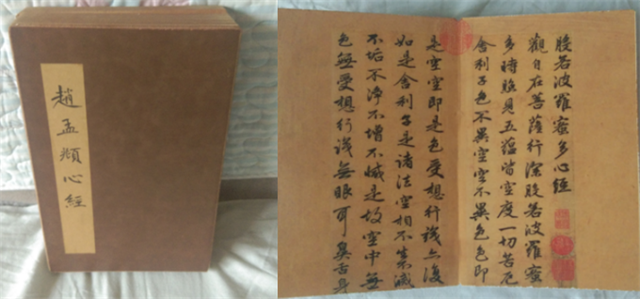 趙孟頫心經
般若波羅蜜多心經
觀自在菩薩行深般若波羅蜜
多時照見五蘊皆空度一切苦厄
舍利子色不異空空不異色色即
是空空即是色受想行識亦復
如是舍利子是諸法空相不生不滅
不垢不淨不增不減是故空中無
色無受想行識無眼耳鼻舌身